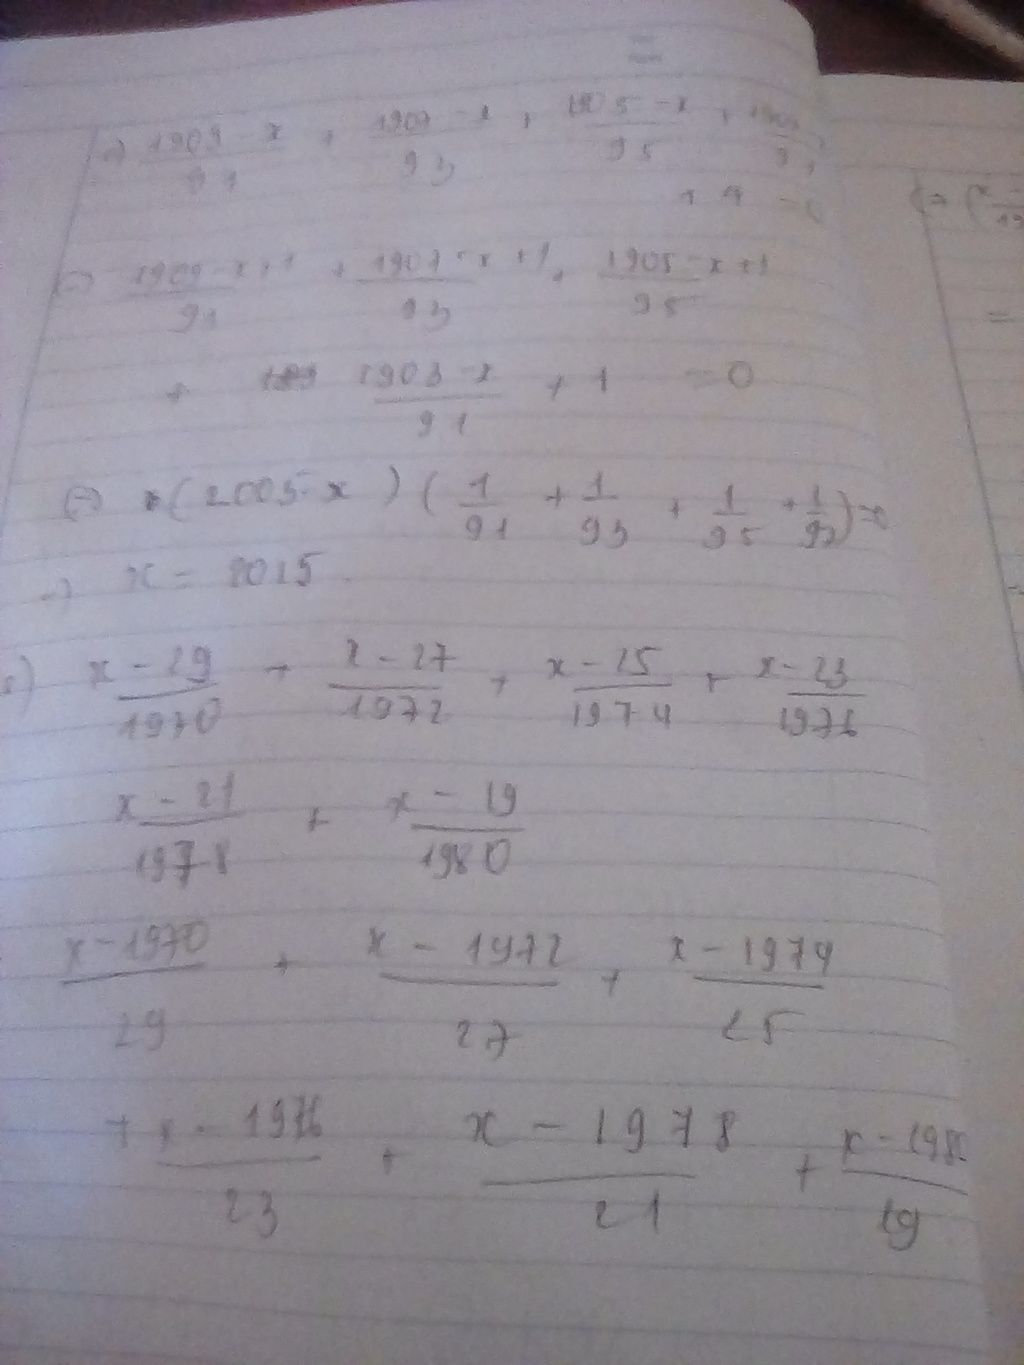 =) 1909 - x / 91 + 1907 - x / 93 + 1905 - x / 95 +
+ 4 = 0
(=) 1909 - x + 1 / 91 + 1907 - x + 1 / 93 + 1905 - x + 1 / 95
+ 1903 - x / 91 + 1 = 0
(=) (2005 - x) (1/91 + 1/93 + 1/95 + 1/97) = 0
=) x = 2015
x - 29 / 1970 + x - 27 / 1972 + x - 25 / 1974 + x - 23 / 1976
x - 21 / 1978 + x - 19 / 1980
x - 1970 / 29 + x - 1972 / 27 + x - 1974 / 25
+ x - 1976 / 23 + x - 1978 / 21 + x - 198 / 19